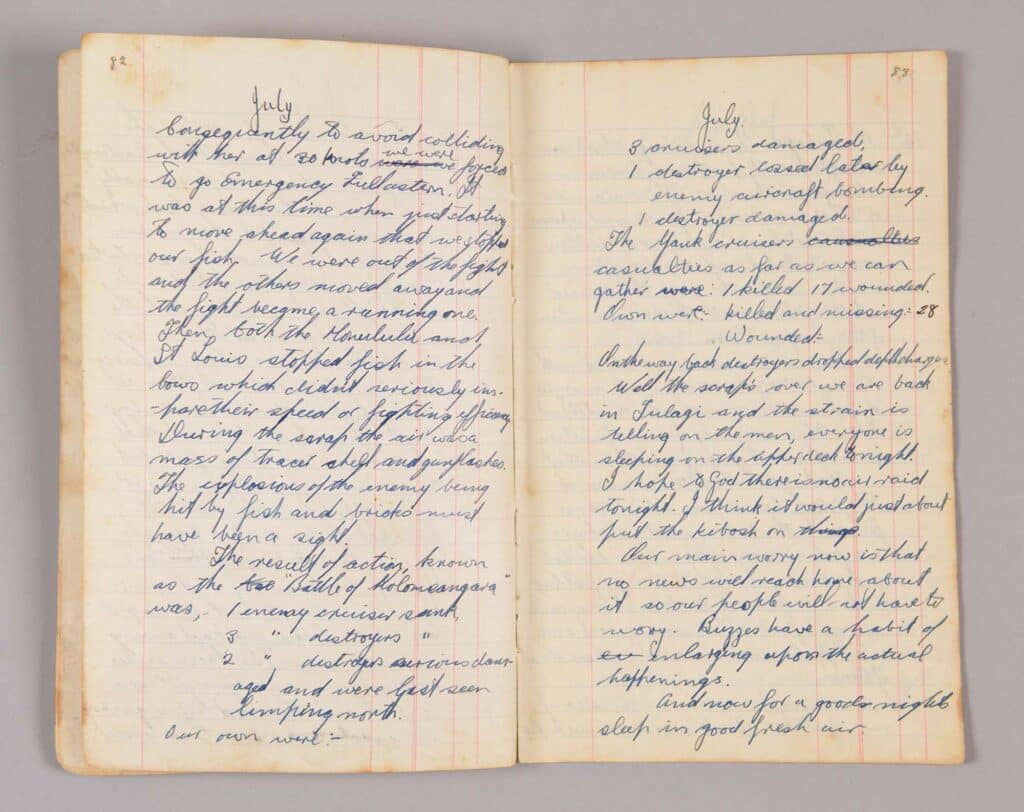 82
July
Consequantly to avoid colliding
with her at 30 knots were we we were forced
to go Emergency Full astern. It
was at this time when just starting
to move ahead again that we stopped
our fish. We were out of the fight
and the others moved away and
the fight became a running one.
Then both the Honululu and
St Louis stopped fish in the
bows which didn't seriously im-
-pare their speed or fighting efficiency
During the scrap the air was a
mass of tracer shell and gunflashes.
The explosions of the enemy being
hit by fish and bricks must
have been a sight.
The result of action, known
as the "Battle of Kolomeangara"
was,- 1 enemy cruiser sunk,
3 " destroyers "
2 " destroyers serious dam-
aged and were last seen
limping north.
Our own were:-
83
July
3 cruisers damaged,
1 destroyer lossed later by
enemy aircraft bombing.
1 destroyer damaged.
The Yank cruisers causualties
casualties as far as we can
gather were: 1 killed 17 wounded.
Own were:- killed and missing:- 28
Wounded:-
On the way back destroyers dropped depth charges
Well the scrap's over we are back
in Tulagi and the strain is
telling on the men, everyone is
sleeping on the upper deck tonight.
I hope to God there is no air raid
tonight. I think it would just about
put the kibosh on things.
Our main worry now is that
no news will reach home about
it so our people will not have to
worry. Buzzes have a habit of
ev enlarging upon the actual
happenings.
And now for a goods nights
sleep in good fresh air.